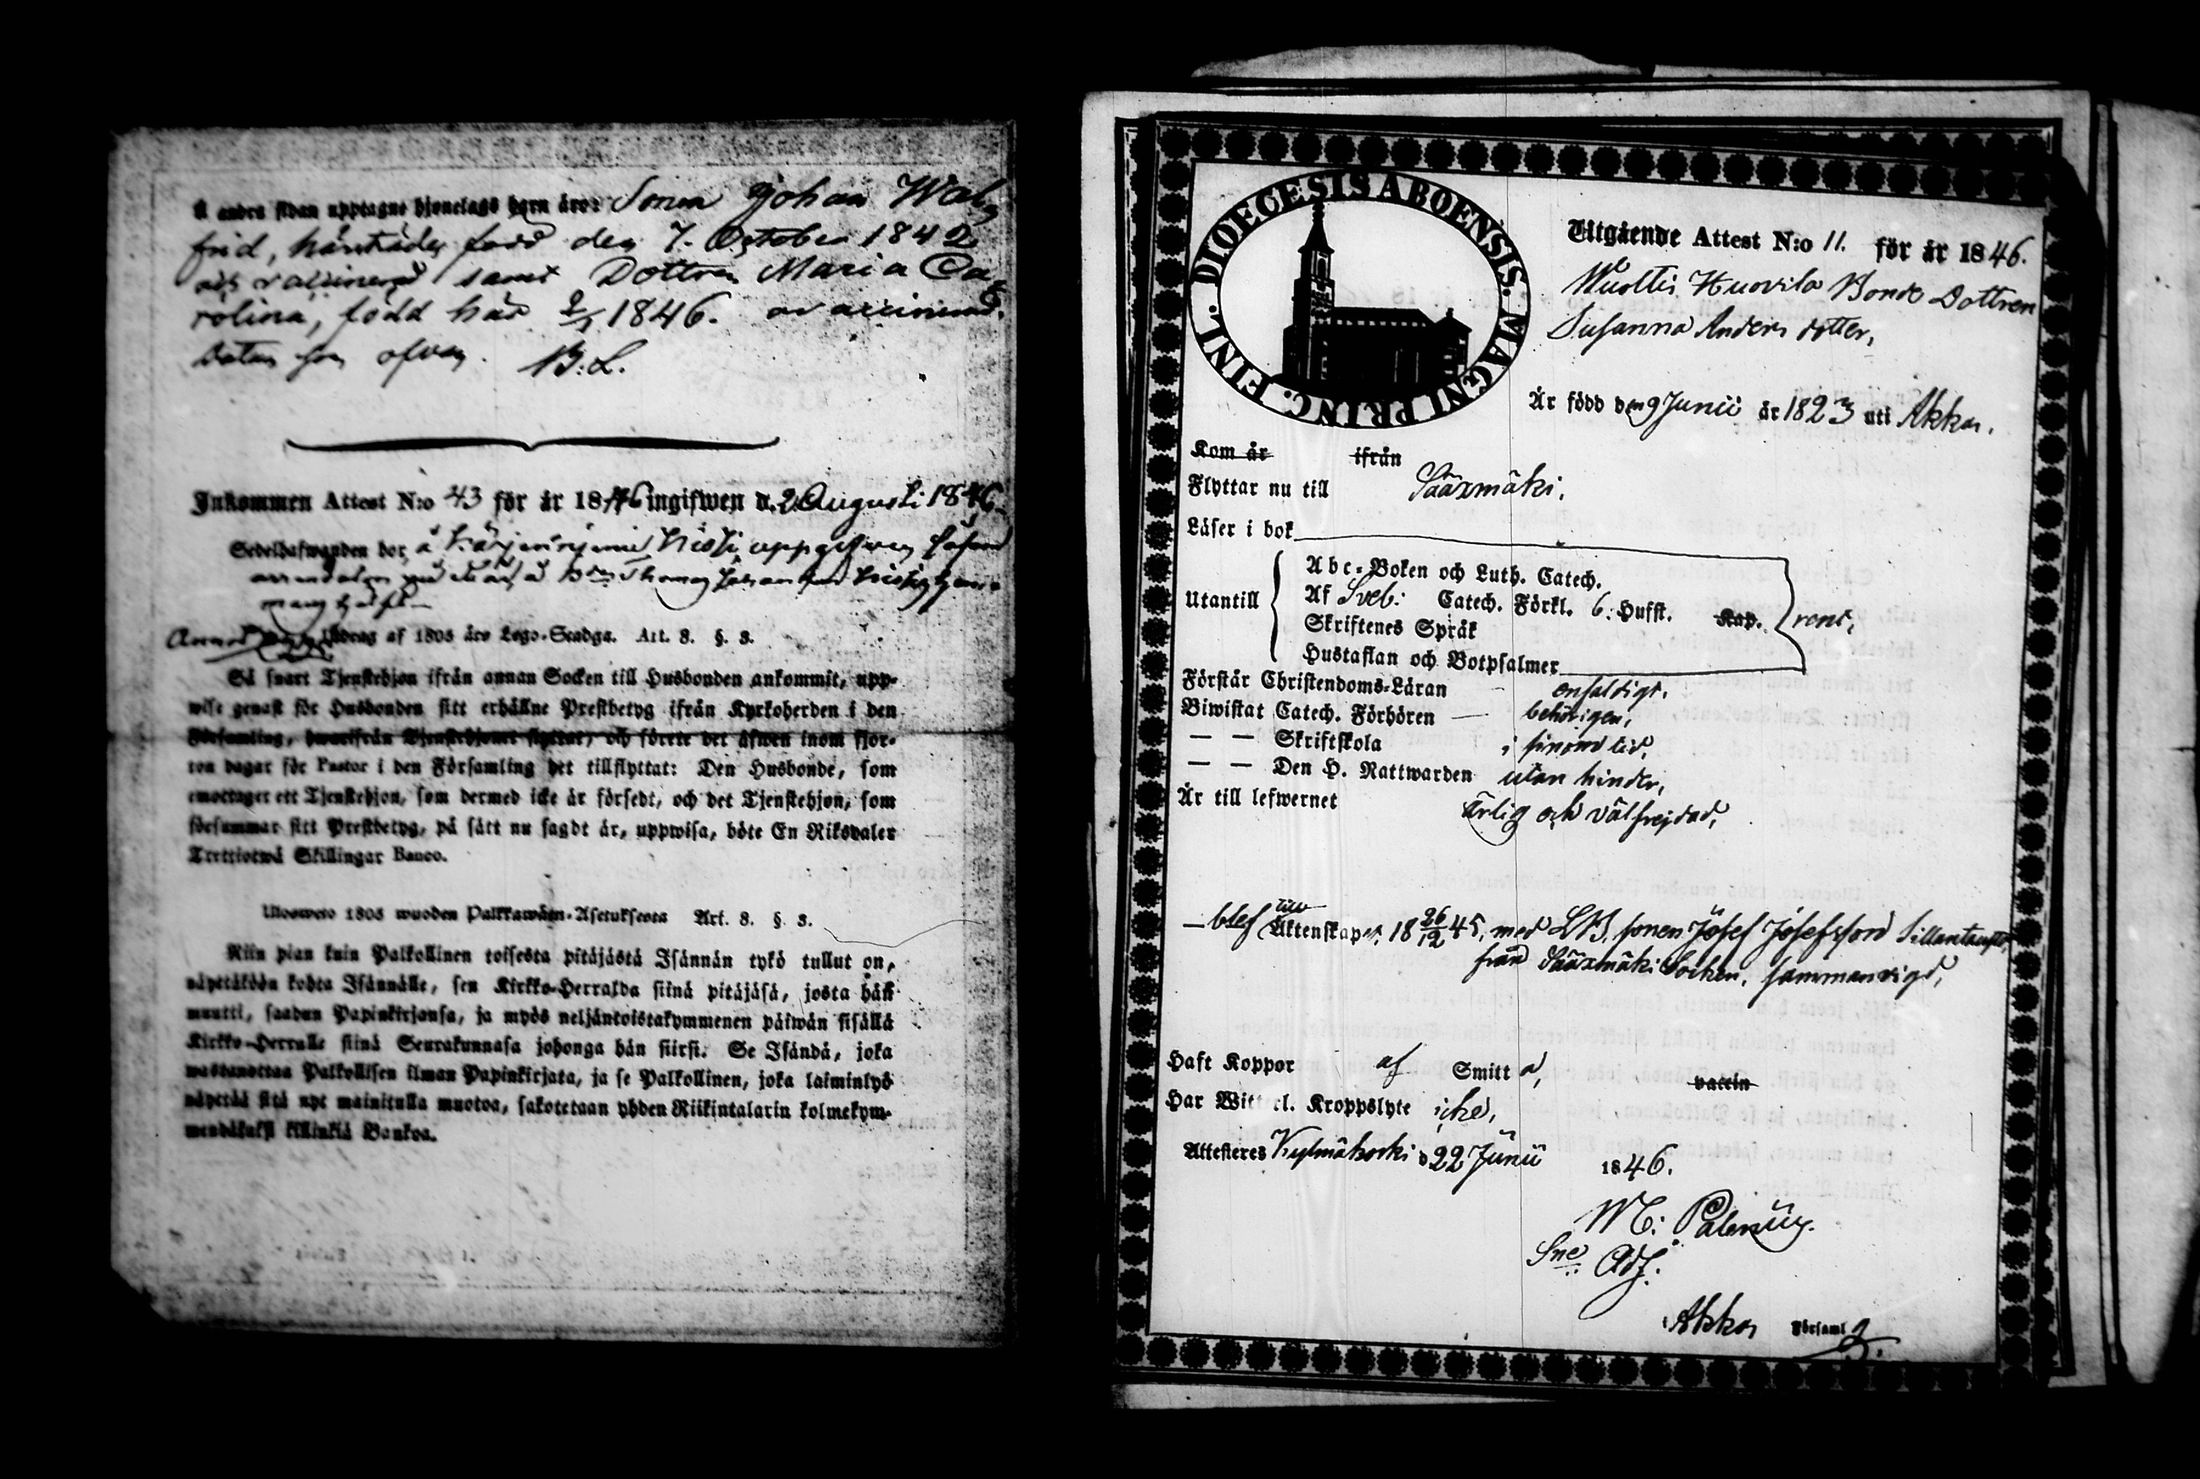 å andra sidan upptagne hjonelags barn äro: Sonen Johan Wal
frid, härstädes född den 7. October 1842
och vaccinerad samt Dottren Maria Ca
rolina, född här 2/1 1846. ovaccinerad.
Datum som ofvan. B: L.
Inkommen Attest N:o 43 för år 1846 ingifwen d. 2 Augusti 1846.
Sedelhafwanden bor å
Utdrag af 1805 års Lego-Stadga. Art. 8. §. 3.
Så snart Tjenstehjon ifrån annan Socken till Husbonden ankommit, upp-
wise genast för Husbonden sitt erhållne Prestbetyg ifrån Kyrkoherden i den
Församling, hwarifrån Tjenstehjonet flyttat, och förete det äfwen inom fjor-
ton dagar för Pastor i den Församling det tillflyttat: Den Husbonde, som
emottager ett Tjenstehjon, som dermed icke är försedt, och det Tjenstehjon, som
försummar sitt Prestbetyg, på sätt nu sagdt är, uppwisa, böte En Riksdaler
Trettiotwå Skillingar Banco.
Ulosweto 1805 wuoden Palkkawäen-Asetuksesta Art. 8. §. 3.
Niin pian kuin Palkollinen toisesta pitäjästä Isännän tykö tullut on,
näyttäköön kohta Isännälle, sen Kirkko-Herralda siinä pitäjäsä, josta hän
muutti, saadun Papinkirjansa, ja myös neljäntoistakymmenen päiwän sisällä
Kirkko-Herralle siinä Seurakunnasa johonga hän siirsi. Se Isändä, joka
wastanottaa Palkollisen ilman Papinkirjata, ja se Palkollinen, joka laiminlyö
näyttää sitä nyt mainitulla muotoa, sakotetaan yhden Riikintalarin kolmekym-
mendäkaksi killinkiä Bankoa.
DIOECESIS ABOENSIS. MAGNI PRINC. FINL.
Utgående Attest N:o 11. för år 1846.
Huovila Bonde Dottren
Susanna Anders dotter,
Är född den 9 Junii år 1823 uti Akkas.
Kom år ifrån
Flyttar nu till Sääxmäki.
Läser i bok
Abc-Boken och Luth. Catech.
Utantill Af Sveb: Catech. Förkl. 6. Hufst. Kap. rent,
Skriftenes Språk
Hustaflan och Botpsalmer
Förstår Christendoms-Läran enfaldigt,
Biwistat Catech. Förhören behörigen,
— — Skriftskola i sinom tid,
— — Den H. Nattwarden utan hinder,
Är till lefwernet ärlig och välfrejdad,
— blef till Äktenskapet 18 26/12 45, med sonen Josef Josefsson
från Sääxmäki Socken, sammanvigd,
Haft Koppor af Smitta, vaccin
Har Witterl. Kroppslyte icke,
Attesteres Kylmäkoski d 22 Junii 1846.
M: Palenius.
Adj.
i Akkas Församlg.